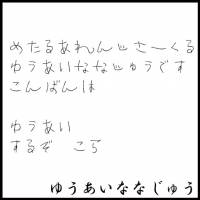 めたるあれんじさーくる
ゆうあいななじゅうです
こんばんは
ゆうあい
するぞ こら
ゆうあいななじゅう